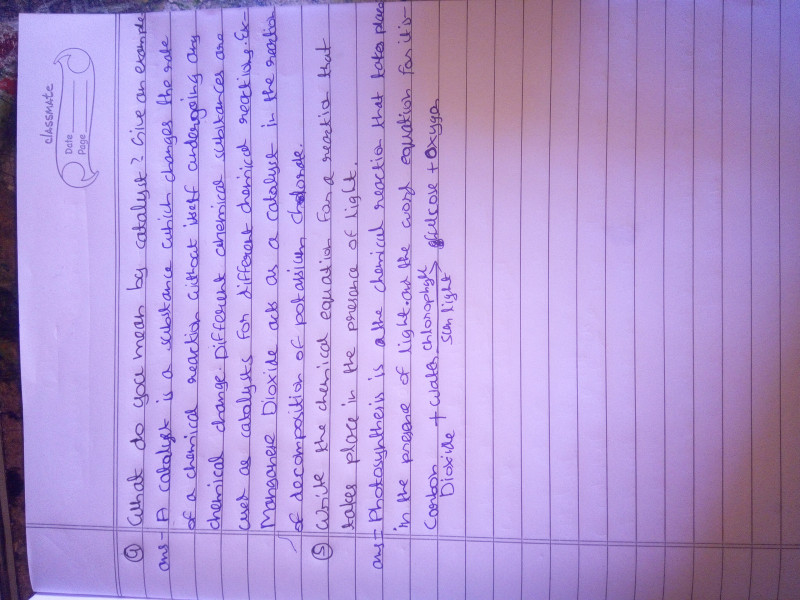 classmate
Date
Page
④ What do you mean by catalyst? Give an example
ans- A catalyst is a substance which changes the rate
of a chemical reaction without itself undergoing any
chemical change. Different chemical substances are
used as catalysts for different chemical reactions. Ex-
Manganese Dioxide acts as a catalyst in the reaction
of decomposition of potassium chlorate.
⑤ Write the chemical equation for a reaction that
takes place in the presence of light.
ans- Photosynthesis is a the chemical reaction that takes place
in the presene of light and the word equation for it is-
Carbon Dioxide + Water chlorophyll sun light > glucose + Oxygen